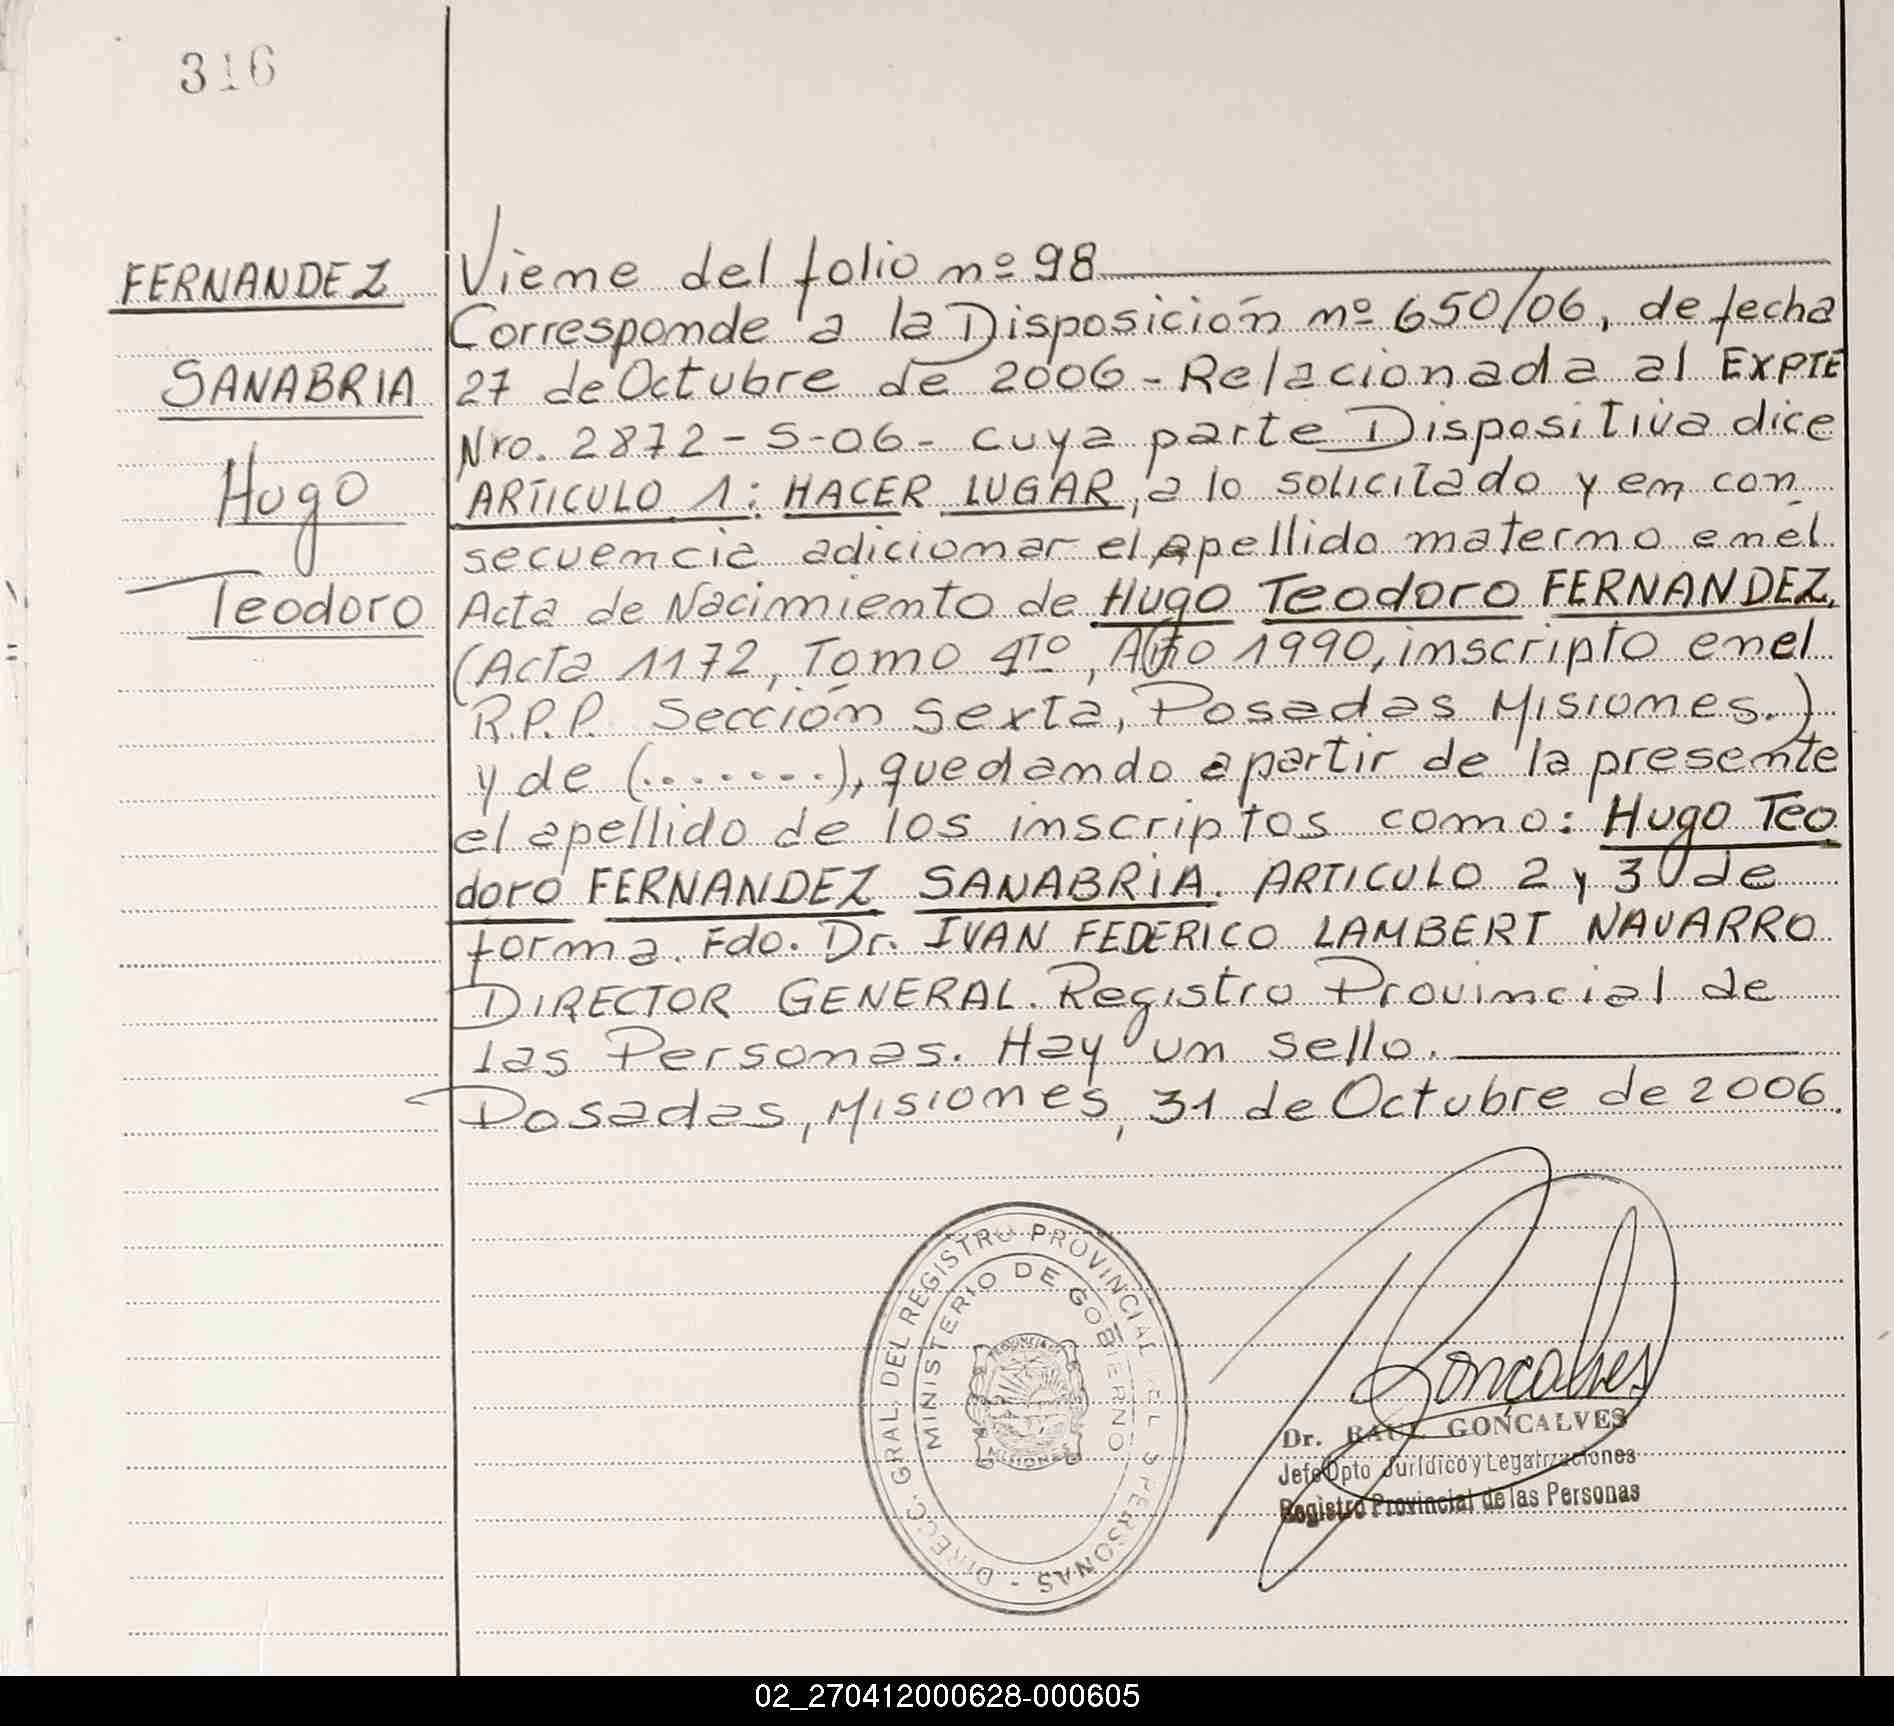 316
FERNANDEZ
SANABRIA
Hugo
Teodoro
Viene del folio nº 98
Corresponde a la Disposición nº 650/06, de fecha
27 de Octubre de 2006 - Relacionada al EXPTE
Nro. 2872 - S - 06 - cuya parte Dispositiva dice
ARTICULO 1: HACER LUGAR, a lo solicitado y en con
secuencia adicionar el apellido materno en el
Acta de Nacimiento de Hugo Teodoro FERNANDEZ,
(Acta 1172, Tomo 4TO, Año 1990, inscripto en el
R.P.P. Sección Sexta, Posadas Misiones.)
y de (.......), quedando a partir de la presente
el apellido de los inscriptos como: Hugo Teo
doro FERNANDEZ SANABRIA. ARTICULO 2 y 3 de
forma. Fdo. Dr. IVAN FEDERICO LAMBERT NAVARRO
DIRECTOR GENERAL. Registro Provincial de
las Personas. Hay un sello.
Posadas, Misiones, 31 de Octubre de 2006.
DIRECC. GRAL. DEL REGISTRO PROVINCIAL PERSONAS -
MINISTERIO DE GOBIERNO
PROVINCIA
MISIONES
Goncalves
Dr. RAUL GONCALVES
Jefe Dpto Jurídico y Legalizaciones
Registro Provincial de las Personas
02_270412000628-000605